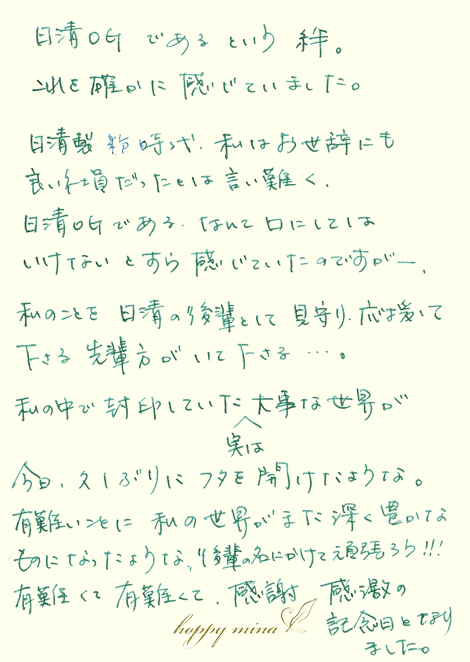 日清OGであるという絆。
これを確かに感じていました。
日清製粉時代、私はお世辞にも
良い社員だったとは言い難く、
日清OGである、なんて口にしては
いけないとすら感じていたのですがー、
私のことを日清の後輩として見守り、応援して
下さる先輩方がいて下さる…。
私の中で封印していた実は大事な世界が
今日、久しぶりにフタを開けたような。
有難いことに私の世界がまた深く豊かな
ものになったような、後輩の名にかけて頑張ろう!!!
有難くて有難くて、感謝 感激の
記念日となり
ました。
happy mina